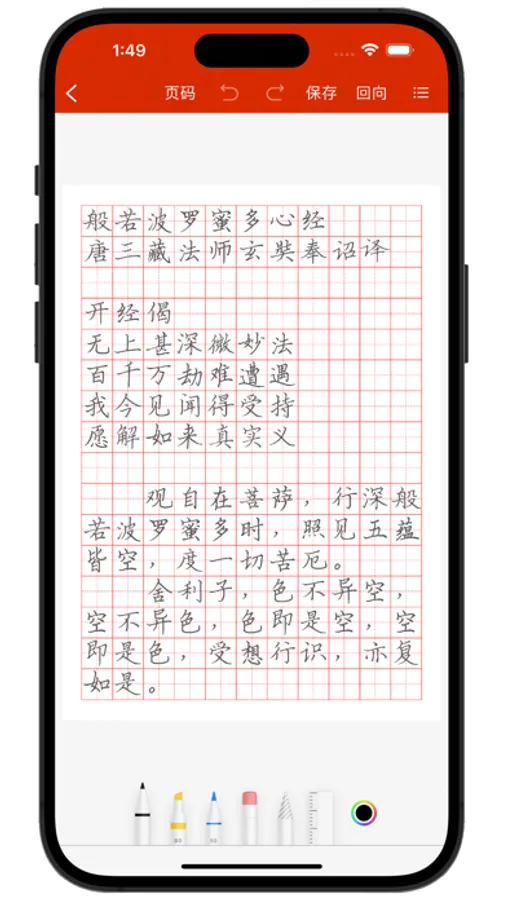 1:49
页码 保存 回向
般若波罗蜜多心经
唐三藏法师玄奘奉诏译
开经偈
无上甚深微妙法
百千万劫难遭遇
我今见闻得受持
愿解如来真实义
观自在菩萨，行深般
若波罗蜜多时，照见五蕴
皆空，度一切苦厄。
舍利子，色不异空，
空不异色，色即是空，空
即是色，受想行识，亦复
如是。